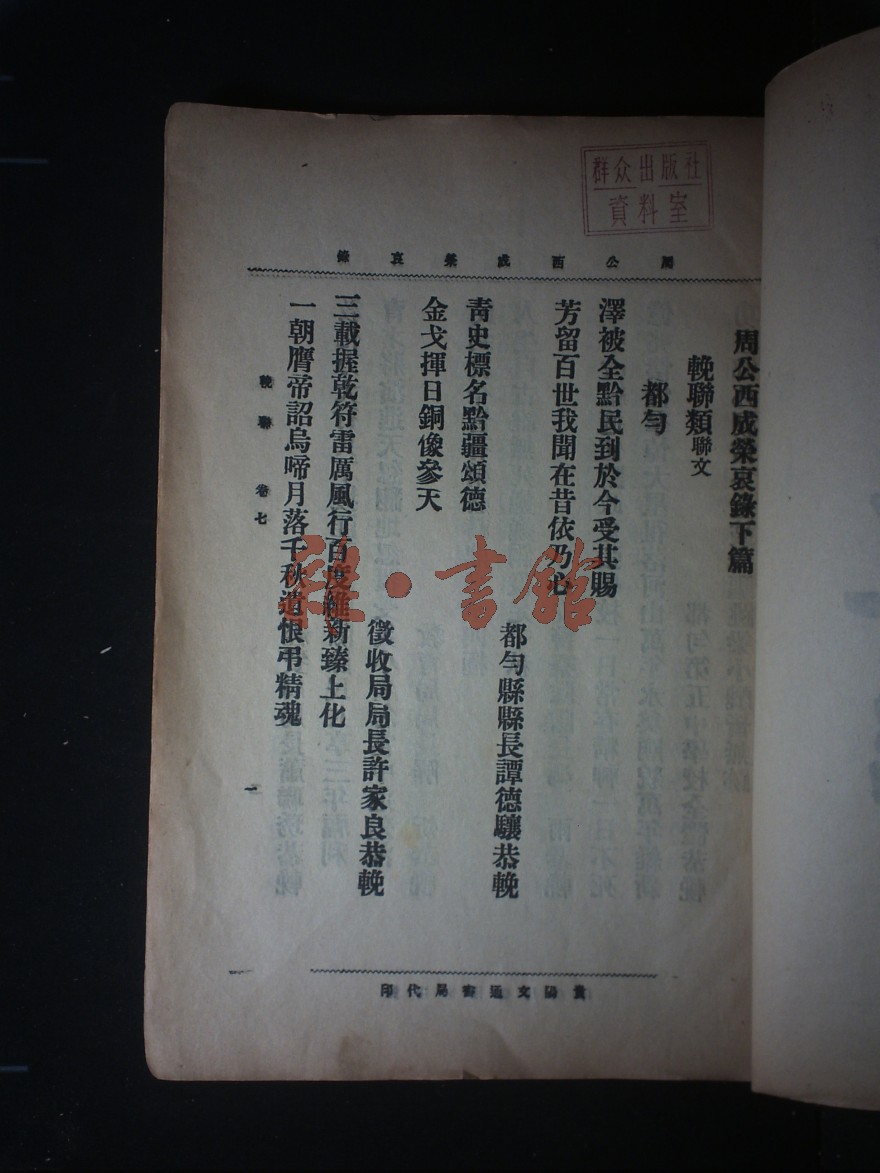 群众出版社
資料室
周公西成榮哀錄
周公西成榮哀錄下篇
輓聯類聯文
都勻
澤被全黔民到於今受其賜
芳留百世我聞在昔依乃心
都勻縣縣長譚德驤恭輓
青史標名黔疆頌德
金戈揮日銅像參天
徵收局局長許家良恭輓
三載握乾符雷厲風行百度維新臻上化
一朝膺帝詔烏啼月落千秋遺恨弔精魂
輓聯 卷七
一
貴陽文通書局代印
書館